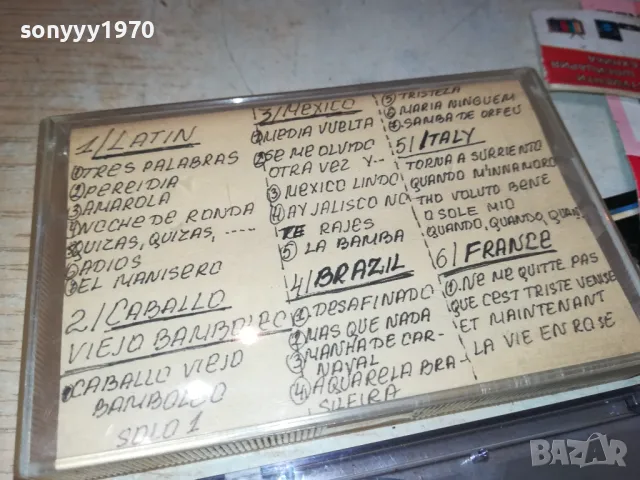 sonyyy1970
1/ LATIN
① TRES PALABRAS
② PEREIDIA
③ AMAROLA
④ NOCHE DE RONDA
⑤ QUIZAS, QUIZAS, -----
⑥ ADIOS
⑦ EL MANISERO
2/ CABALLO
VIEJO BAMBOLEO
CABALLO VIEJO
BAMBOLEO
SOLO 1
3/ MEXICO
① MEDIA VUELTA
② SE ME OLVIDO
OTRA VEZ Y--
③ MEXICO LINDO
④ AY JALISCO NO
TE RAJES
⑤ LA BAMBA
4/ BRAZIL
① DESAFINADO
② MAS QUE NADA
③ MANHA DE CAR-
NAVAL
④ AQUARELA BRA-
SILEIRA
⑤ TRISTEZA
⑥ MARIA NINGUEM
⑦ SAMBA DE ORFEU
5/ ITALY
TORNA A SURRIENTO
QUANDO M'INNAMORO
THO VOLUTO BENE
O SOLE MIO
QUANDO, QUANDO, QUAN
6/ FRANCE
①. NE ME QUITTE PAS
QUE CEST TRISTE VENISE
ET MAINTENANT
LA VIE EN ROSE
BAZAR
bg